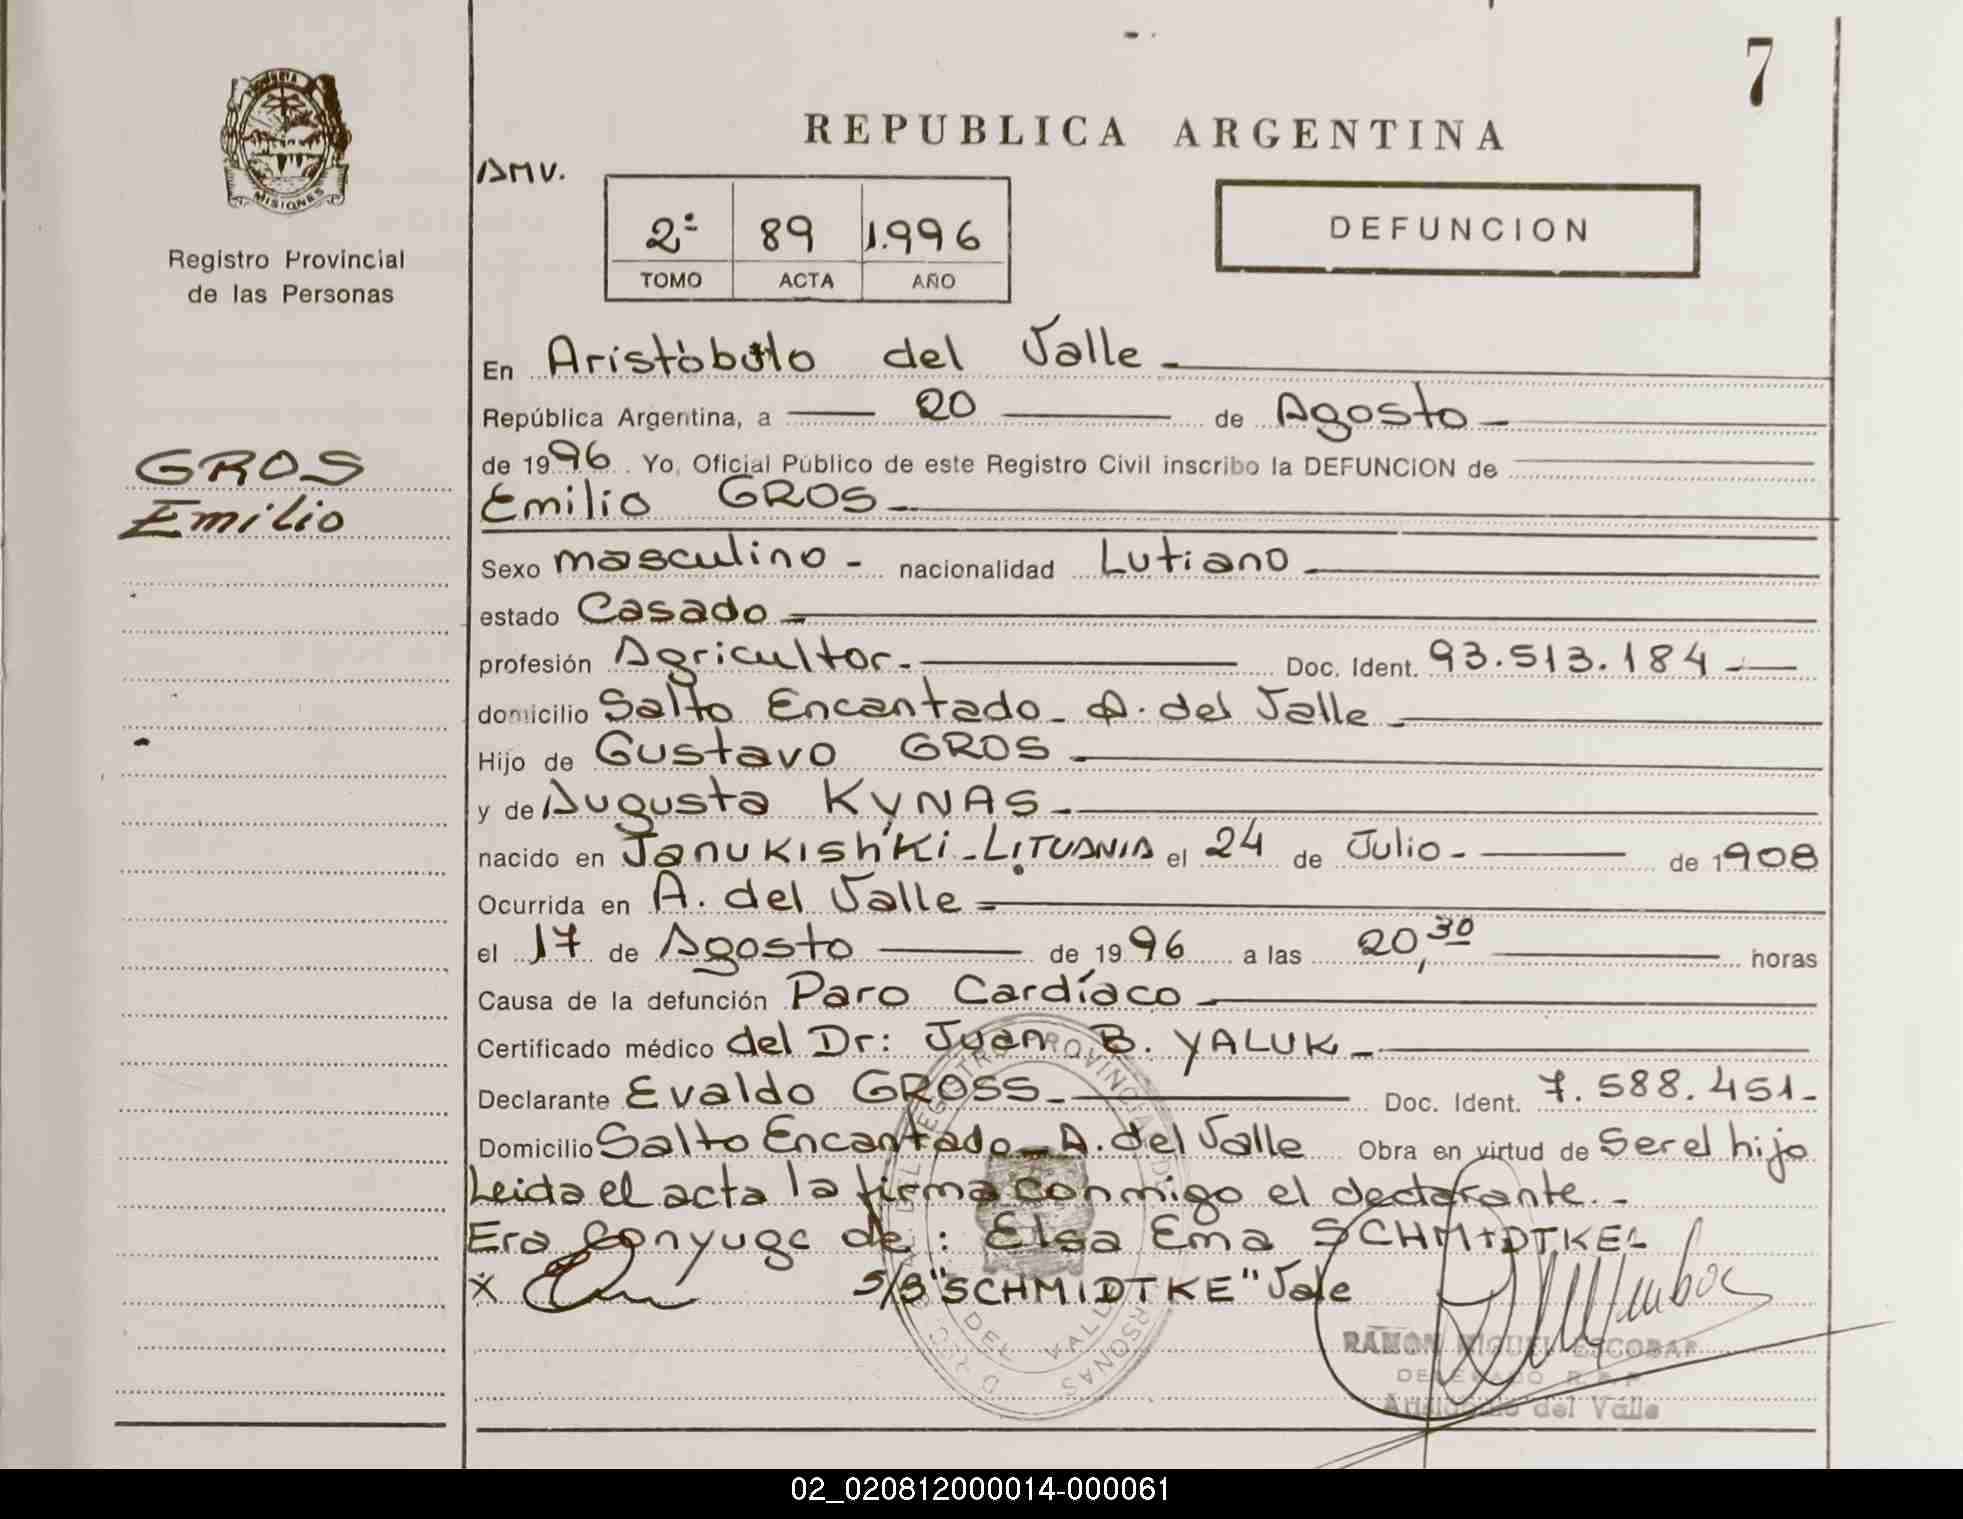 7
REPUBLICA ARGENTINA
MISIONES
Registro Provincial
de las Personas
AMV.
2º 89 1.996
TOMO ACTA AÑO
DEFUNCION
En Aristóbulo del Valle
República Argentina, a 20 de Agosto
de 1996. Yo, Oficial Público de este Registro Civil inscribo la DEFUNCION de
GROS
Emilio
Emilio GROS
Sexo masculino - nacionalidad Lutiano
estado Casado
profesión Agricultor. Doc. Ident. 93.513.184
domicilio Salto Encantado - A. del Valle
Hijo de Gustavo GROS
y de Augusta KYNAS
nacido en Janukishki - LITUANIA el 24 de Julio - de 1908
Ocurrida en A. del Valle
el 17 de Agosto de 1996 a las 20,30 horas
Causa de la defunción Paro Cardíaco
Certificado médico del Dr: Juan B. YALUK
Declarante Evaldo GROSS Doc. Ident. 7.588.451
Domicilio Salto Encantado - A. del Valle Obra en virtud de Ser el hijo
Leida el acta la firma conmigo el declarante.-
Era Conyuge de: Elsa Ema SCHMIDTKEL
X S/B "SCHMIDTKE" Vale
RAMON MIGUEL ESCOBAR
DELEGADO R.P.P
Aristobulo del Valle
02_020812000014-000061